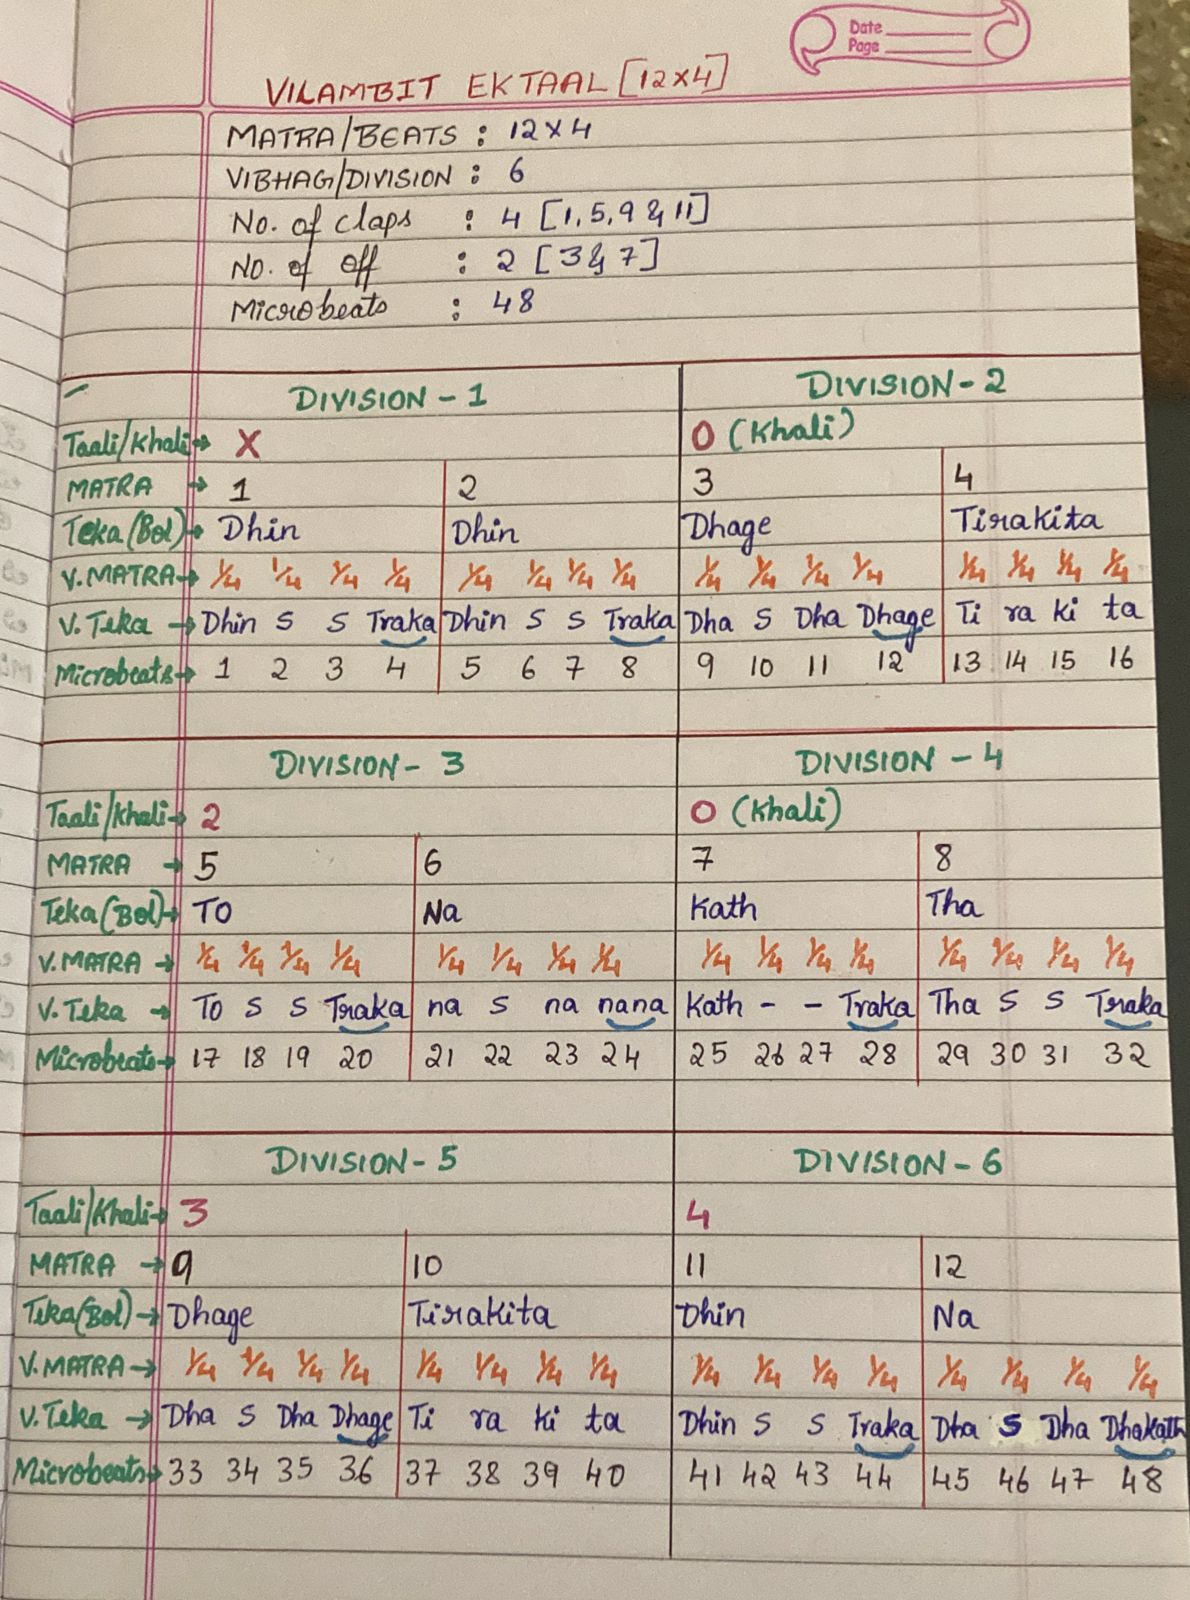 Date
Page
VILAMBIT EKTAAL [12x4]
MATRA/BEATS : 12x4
VIBHAG/DIVISION : 6
No. of claps : 4 [1, 5, 9 & 11]
No. of off : 2 [3 & 7]
Microbeats : 48
DIVISION - 1 DIVISION - 2
Taali/Khali → X 0 (Khali)
MATRA → 1 2 3 4
Teka (Bol) → Dhin Dhin Dhage Tirakita
V.MATRA → 1/4 1/4 1/4 1/4 1/4 1/4 1/4 1/4 1/4 1/4 1/4 1/4 1/4 1/4 1/4 1/4
V. Teka → Dhin S S Traka Dhin S S Traka Dha S Dha Dhage Ti ra ki ta
Microbeats → 1 2 3 4 5 6 7 8 9 10 11 12 13 14 15 16
DIVISION - 3 DIVISION - 4
Taali/Khali → 2 0 (Khali)
MATRA → 5 6 7 8
Teka (Bol) → TO Na Kath Tha
V.MATRA → 1/4 1/4 1/4 1/4 1/4 1/4 1/4 1/4 1/4 1/4 1/4 1/4 1/4 1/4 1/4 1/4
V. Teka → To S S Traka na S na nana Kath - - Traka Tha S S Traka
Microbeats → 17 18 19 20 21 22 23 24 25 26 27 28 29 30 31 32
DIVISION - 5 DIVISION - 6
Taali/Khali → 3 4
MATRA → 9 10 11 12
Teka (Bol) → Dhage Tirakita Dhin Na
V.MATRA → 1/4 1/4 1/4 1/4 1/4 1/4 1/4 1/4 1/4 1/4 1/4 1/4 1/4 1/4 1/4 1/4
V. Teka → Dha S Dha Dhage Ti ra ki ta Dhin S S Traka Dha S Dha Dhakath
Microbeats → 33 34 35 36 37 38 39 40 41 42 43 44 45 46 47 48